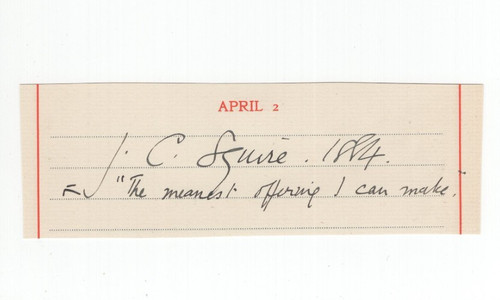 APRIL 2
J. C. Squire. 1884.
"The meanest offering I can make."